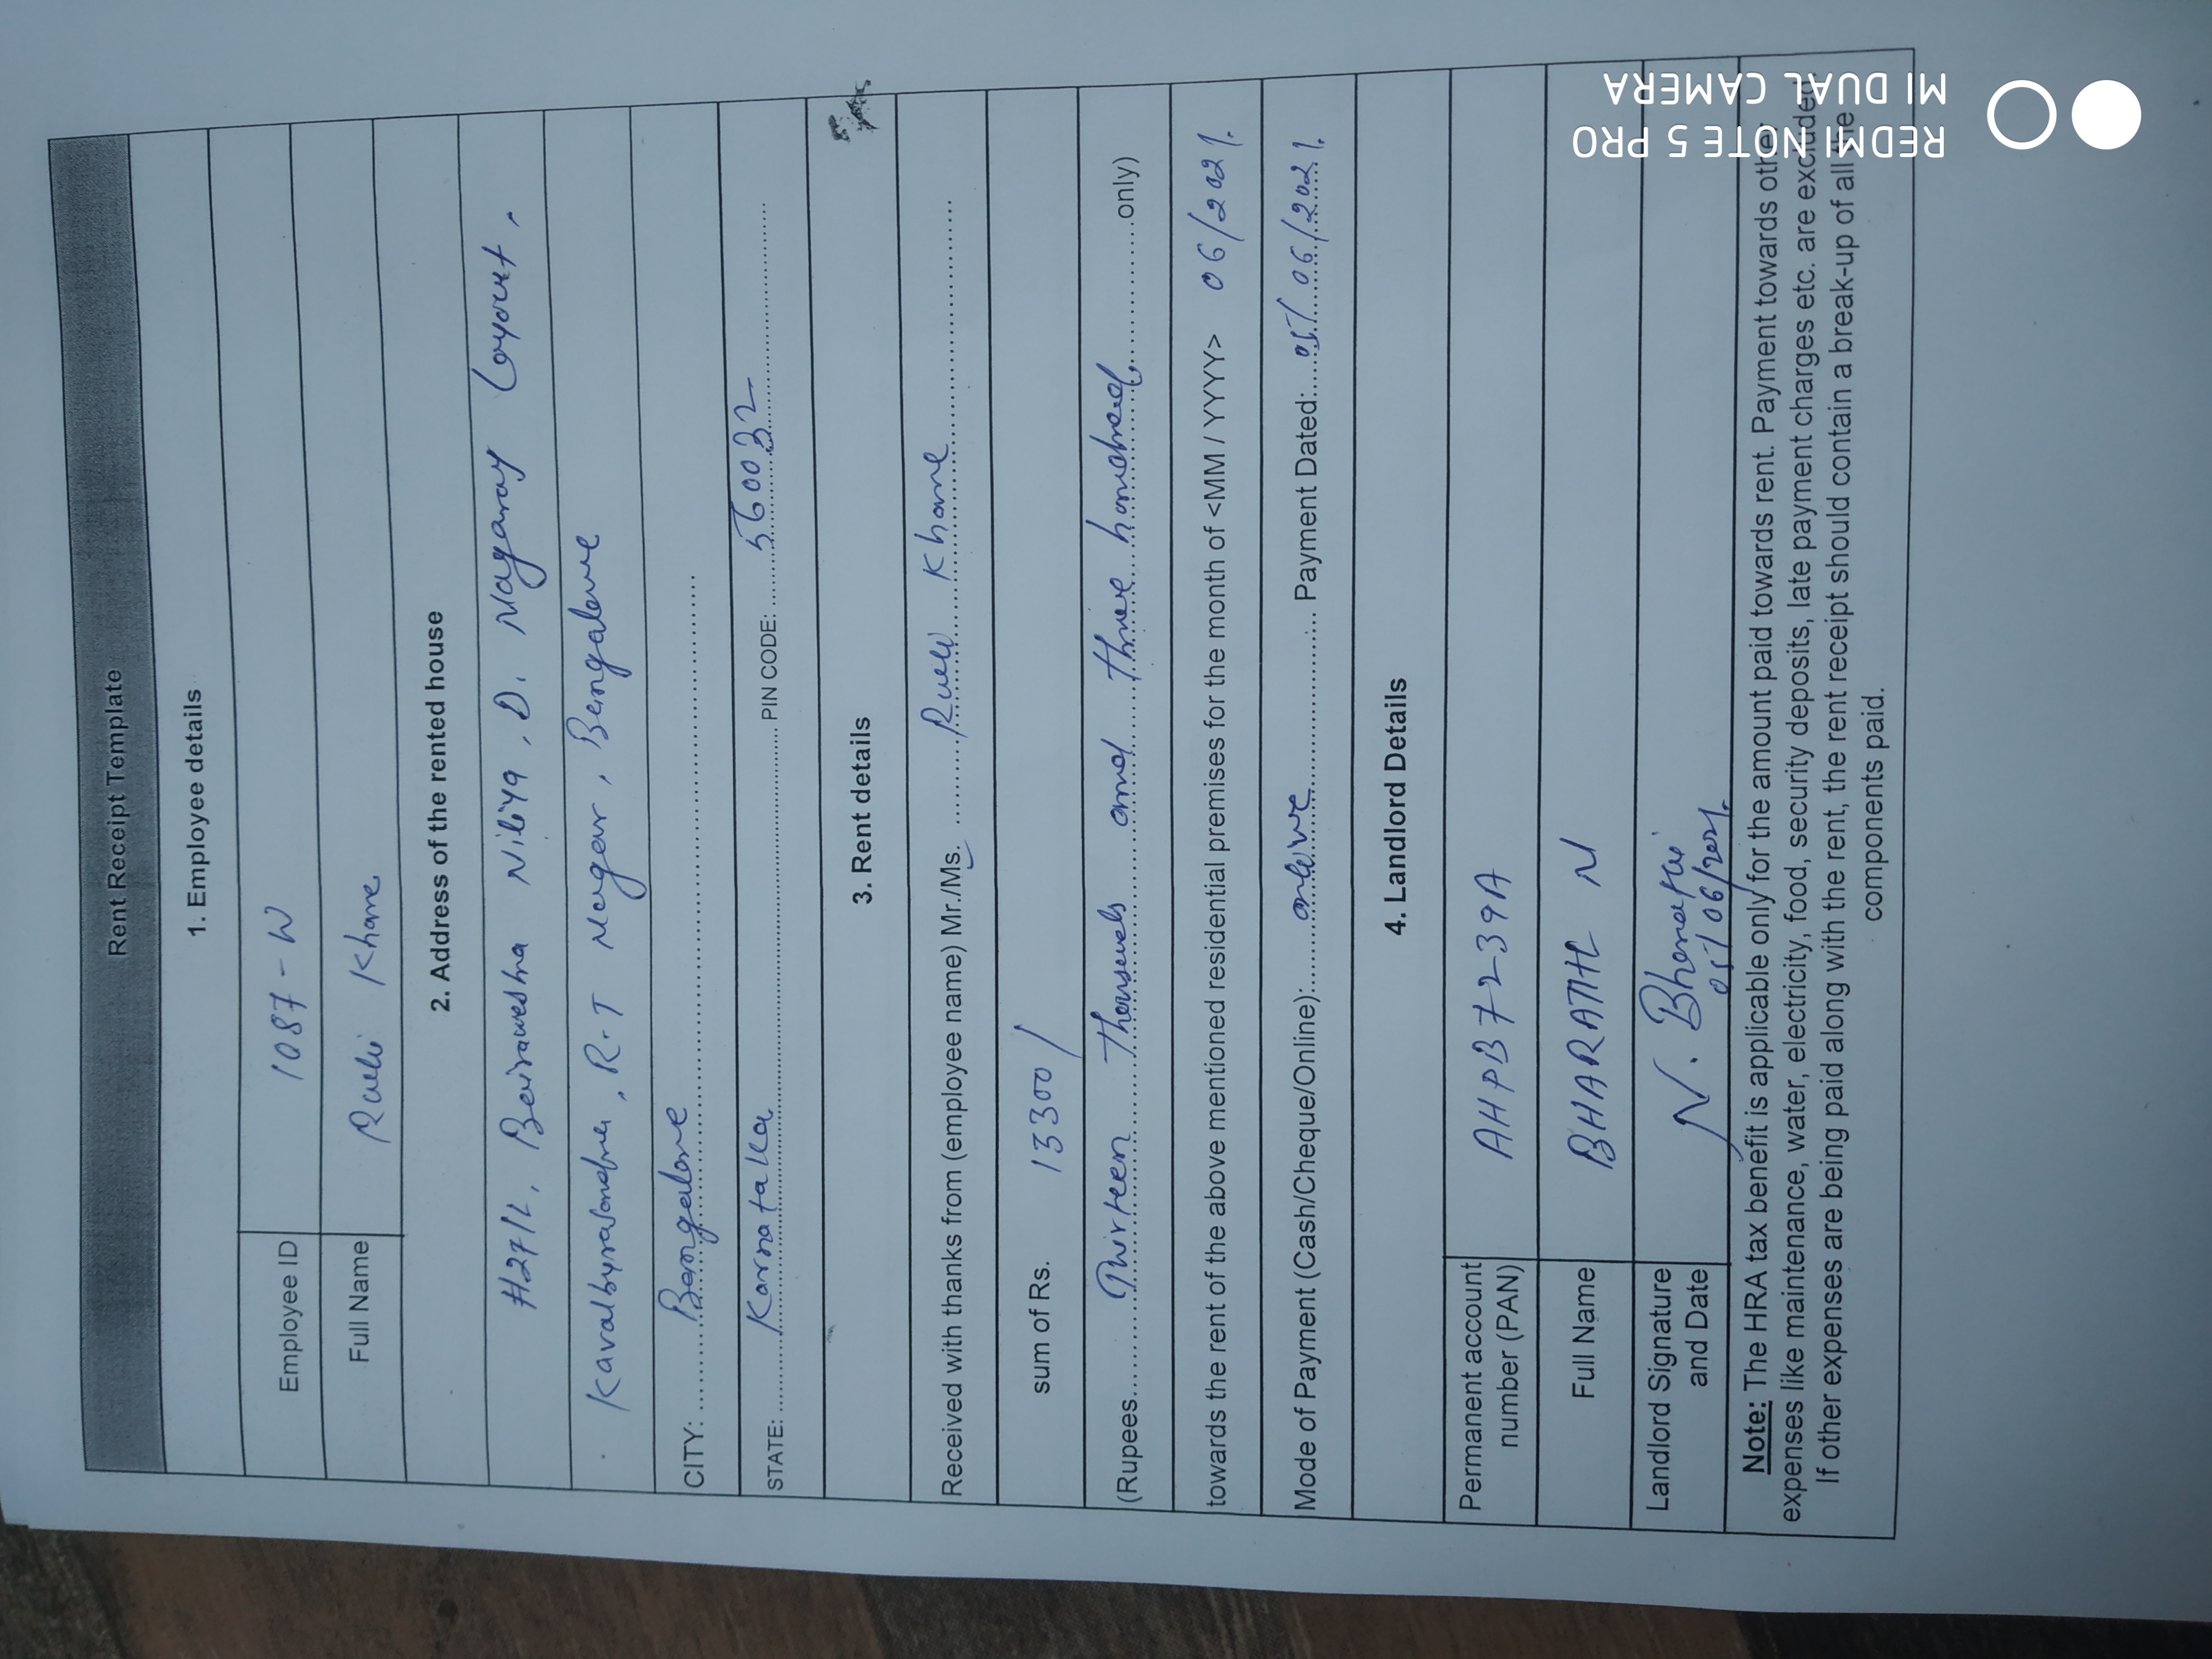 Rent Receipt Template
1. Employee details
Employee ID 1087-W
Full Name Khare
2. Address of the rented house
#27/1, Nilaya, D. Nagaraj Layout,
R.T Nagar, Bangalore
CITY: Bangalore
STATE: Karnataka PIN CODE: 560032
3. Rent details
Received with thanks from (employee name) Mr./Ms. Khare
sum of Rs. 13300/
(Rupees Thirteen and three hundred only)
towards the rent of the above mentioned residential premises for the month of <MM / YYYY> 06/2021.
Mode of Payment (Cash/Cheque/Online): online Payment Dated: 05/06/2021.
4. Landlord Details
Permanent account number (PAN) AHPB7239A
Full Name BHARATH N
Landlord Signature and Date N. 05/06/2021.
Note: The HRA tax benefit is applicable only for the amount paid towards rent. Payment towards other
expenses like maintenance, water, electricity, food, security deposits, late payment charges etc. are excluded.
If other expenses are being paid along with the rent, the rent receipt should contain a break-up of all the
components paid.
REDMI NOTE 5 PRO
MI DUAL CAMERA